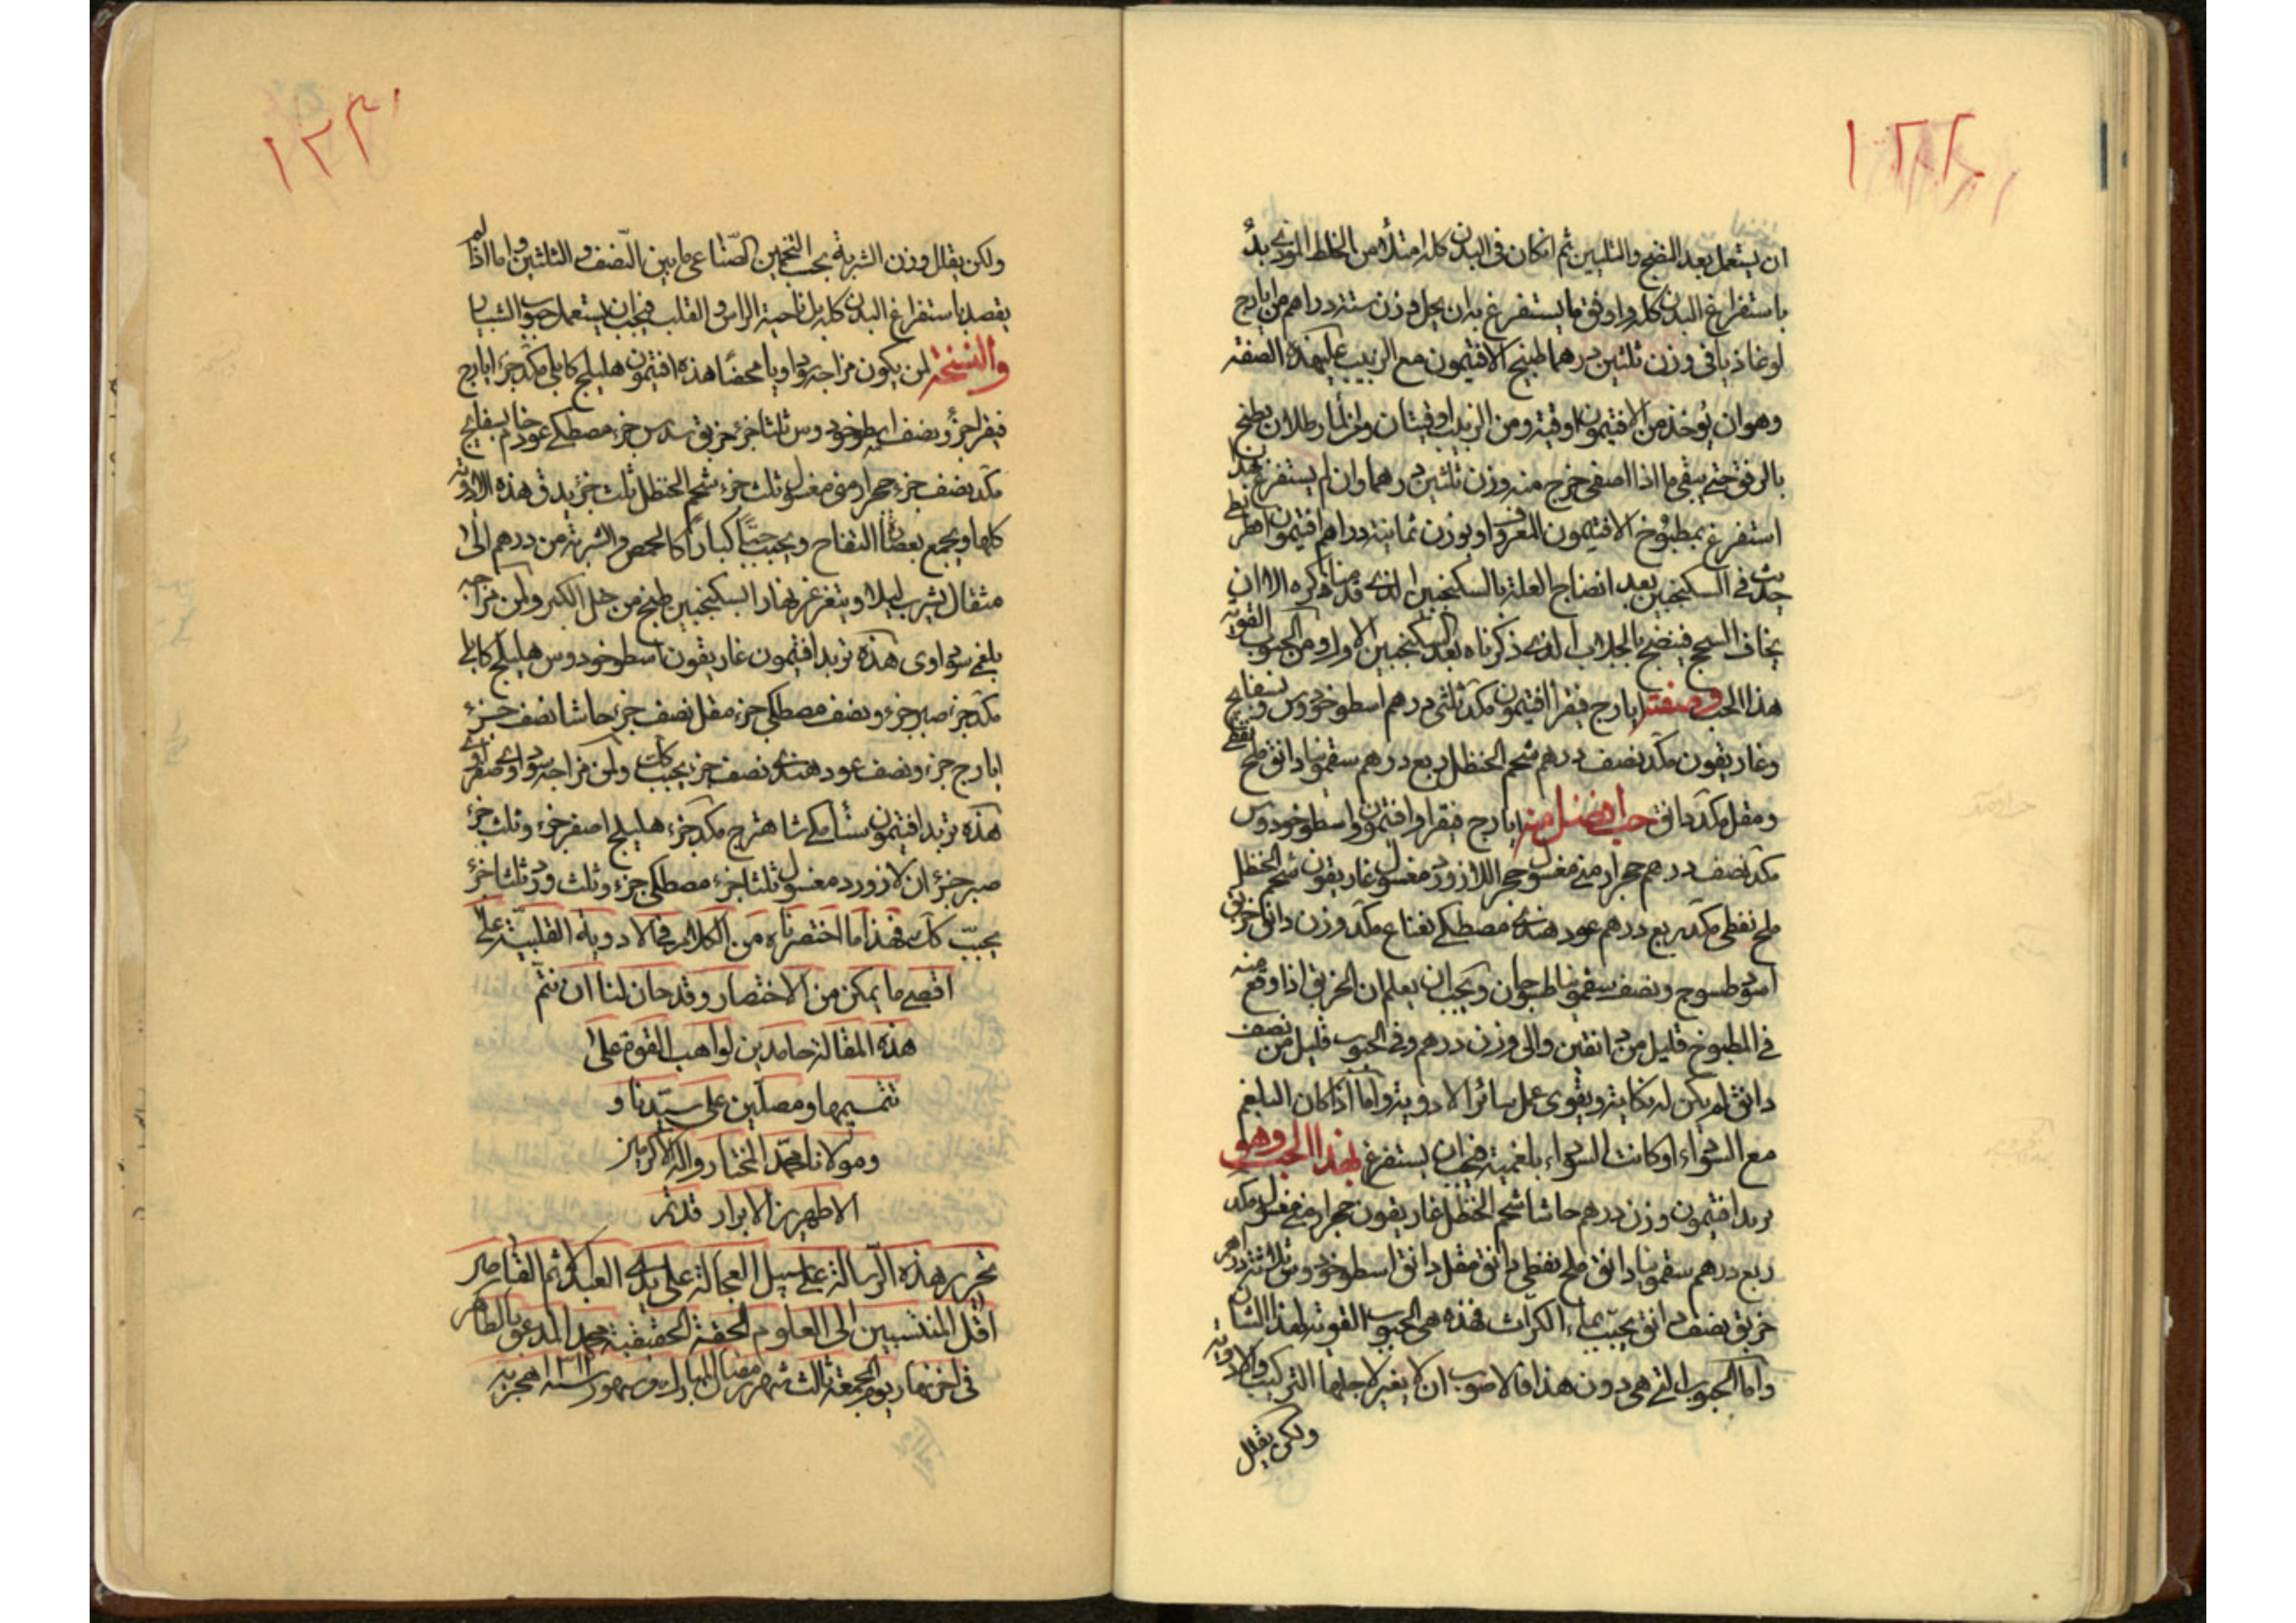 ان يستعمل بعد النضج والتليين ثم ان كان في البدن كله امتلاء من الخلط الموذي بدئ
باستفراغ البدن كله واوفق ما يستفرغ به ان يحل وزن ستة دراهم من ايارج
لوغاذيا في وزن ثلثين درهما طبيخ الافتيمون مع الزبيب على هذه الصفة
وهو ان يوخذ من الافتيمون اوقية ومن الزبيب اوقيتان ومن الماء رطلان يطبخ
بالرفق حتى يبقى ما اذا صفى خرج منه وزن ثلثين درهما وان لم يستفرغ بهذا
استفرغ بمطبوخ الافتيمون المعروف او بوزن ثمانية دراهم افتيمون
في السكنجبين بعد انضاج العلة بالسكنجبين الذي قدمنا ذكره الا ان
يخاف السحج فينضج بالجلاب الذي ذكرناه بعد السكنجبين الاول ومن الحبوب القوية
هذا الحب وصفته ايارج فيقرا افتيمون مكد ثلثي درهم اسطوخودوس وبسفايج
وغاريقون مكد نصف درهم شحم الحنظل ربع درهم سقمونيا دانق ملح نفطي
ومقل مكد دانق حب افضل منه ايارج فيقرا وافتيمون واسطوخودوس
مكد نصف درهم حجر ارمني مغسول حجر اللازورد مغسول غاريقون شحم الحنظل
ملح نفطي مكد ربع درهم عود هندي مصطكي نعناع مكد وزن دانق خربق
اسود طسوج ونصف سقمونيا طسوجان ويجب ان يعلم ان الخربق اذا وقع منه
في المطبوخ قليل من دانقين والى وزن درهم وفي الحبوب قليل من نصف
دانق لم يكن له نكاية ويقوى عمل سائر الادوية واما اذا كان البلغم
مع السوداء او كانت السوداء بلغمية فيجب ان يستفرغ بهذا الحب وهو
تربد افتيمون وزن درهم حاشا شحم الحنظل غاريقون حجر ارمني مغسول مكد
ربع درهم سقمونيا دانق ملح نفطي دانق مقل دانق اسطوخودوس ثلاثة دراهم
خربق نصف دانق يحبب بماء الكراث فهذه هي الحبوب القوية لهذا الشان
واما الحبوب التي هي دون هذا فالاصوب ان لا يغير لاجلها التركيب والادوية
ولكن يقلل
١٢٣
ولكن يقلل وزن الشربة بحسب التخمين الصناعي ما بين النصف والثلثين واما اذا لم
يقصد استفراغ البدن كله بل ناحية الراس والقلب فيجب ان يستعمل حبوب الشبيار
والنسخة لمن يكون مزاجه سوداويا محضا هذه افتيمون هليلج كابلي مكد جزء ايارج
فيقرا جزء ونصف اسطوخودوس ثلثا جزء خربق سدس جزء مصطكي عود خام بسفايج
مكد نصف جزء حجر ارمني مغسول ثلث جزء شحم الحنظل ثلث جزء يدق هذه الادوية
كلها ويجمع بعصارة التفاح ويحبب حبا كبارا كالحمص والشربة من درهم الى
مثقال يشرب ليلا ويتغرغر نهارا بسكنجبين طبخ من خل الكبر ولمن مزاجه
بلغمي سوداوي هذه تربد افتيمون غاريقون اسطوخودوس هليلج كابلي
مكد جزء صبر جزء ونصف مصطكي جزء مقل نصف جزء حاشا نصف جزء
ايارج جزء ونصف عود هندي نصف جزء يحبب كذلك ولمن مزاجه سوداوي صفراوي
هذه تربد افتيمون سنا مكي شاهترج مكد جزء هليلج اصفر جزء وثلث جزء
صبر جزءان لازورد مغسول ثلثا جزء مصطكي جزء وثلث ورد ثلثا جزء
يحبب كذلك فهذا ما اختصرناه من الكلام في الادوية القلبية على
اقصى ما يمكن من الاختصار وقد حان لنا ان نتم
هذه المقالة حامدين لواهب القوة على
تتميمها ومصلين على سيدنا و
ومولانا محمد المختار واله الاكرمين
الاطهرين الابرار قد تم
تحرير هذه الرسالة على سبيل العجالة على يدي العبد الاثم القاصر
اقل المنتسبين الى العلوم الحقة الحقيقية محمد المدعو بالطاهر
في اخر نهار يوم الجمعة ثالث شهر رمضان المبارك من شهور سنة هجرية